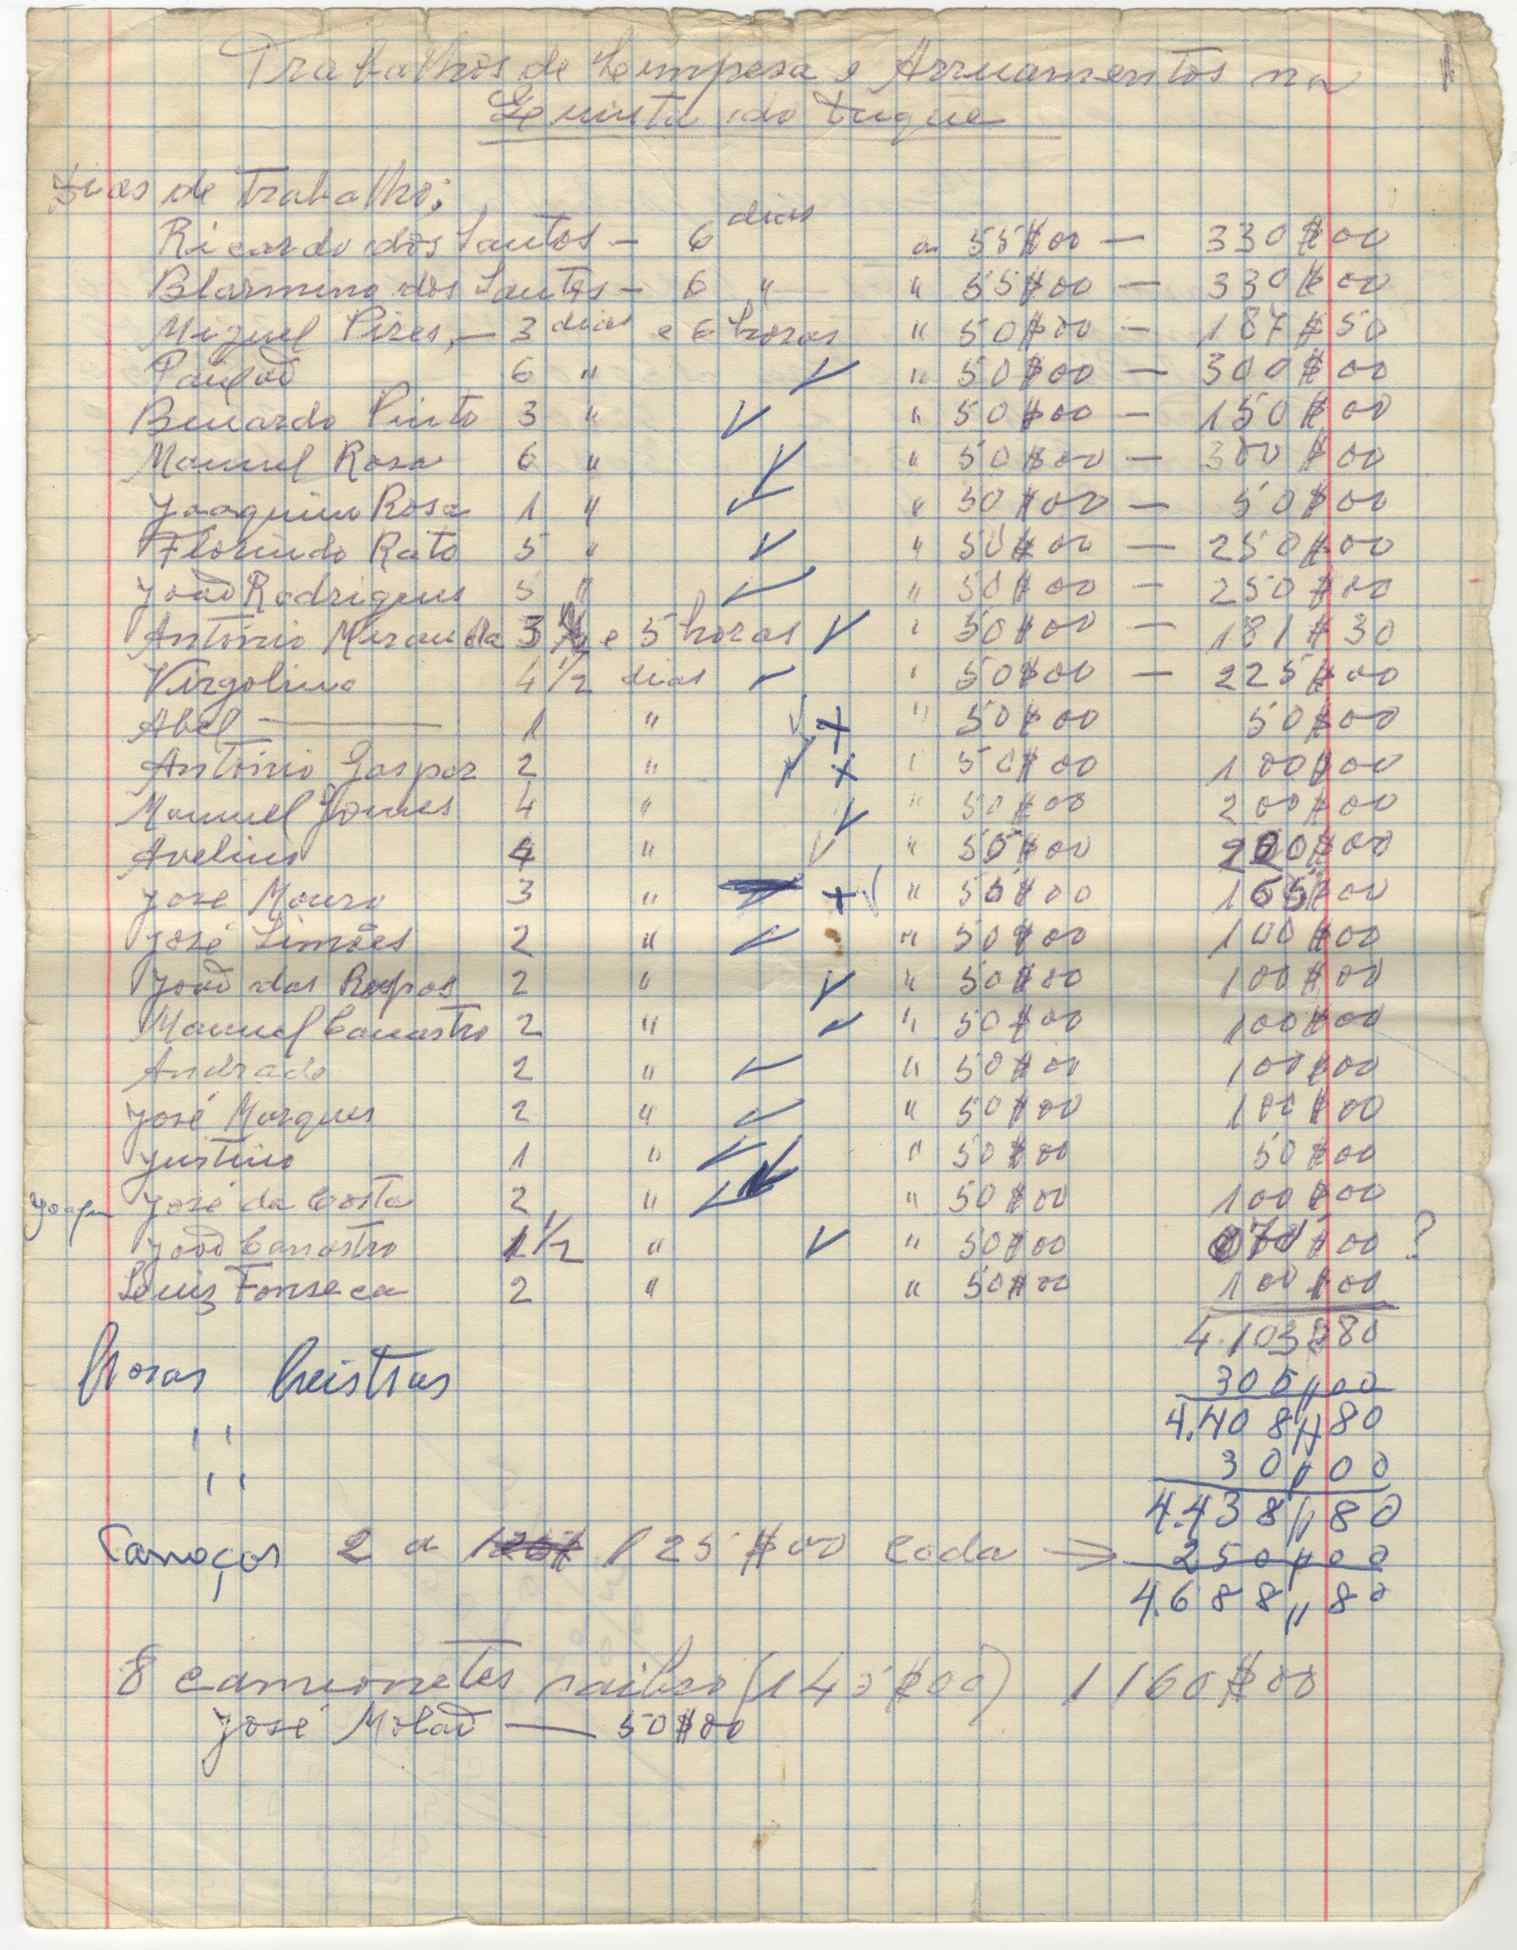 Trabalhos de Limpesa e Arruamentos na
Quinta do Duque
Dias de Trabalho:
Ricardo dos Santos - 6 dias a 55$00 - 330$00
Blarmino dos Santos - 6 " " 55$00 - 330$00
Miguel Pires, - 3 dias e 6 horas " 50$00 - 187$50
6 " " 50$00 - 300$00
Bernardo Pinto 3 " " 50$00 - 150$00
Manuel Rosa 6 " " 50$00 - 300$00
Joaquim Rosa 1 " " 50$00 - 50$00
Florindo Rato 5 " " 50$00 - 250$00
João Rodrigues 5 " " 50$00 - 250$00
António Miranda 3 e 5 horas " 50$00 - 181$30
Virgolino 4 1/2 dias " 50$00 - 225$00
Abel — 1 " + " 50$00 50$00
António Gaspar 2 " + " 50$00 100$00
Manuel Gomes 4 " " 50$00 200$00
Avelino 4 " " 55$00 220$00
José Mouro 3 " + " 55$00 165$00
José Simões 2 " " 50$00 100$00
João das 2 " " 50$00 100$00
Manuel Canastro 2 " " 50$00 100$00
Andrade 2 " " 50$00 100$00
José Marques 2 " " 50$00 100$00
Justino 1 " " 50$00 50$00
José da Costa 2 " " 50$00 100$00
João Canastro 1 1/2 " " 50$00 ?
Luiz Fonseca 2 " " 50$00 100$00
4.103$80
horas 305,,00
4.408,,80
" 30,,00
" 4.438,,80
Carroças 2 a 125$00 cada → 250,,00
4.688,,80
8 camionetes saibro (145$00) 1160$00
José Molao — 50$00